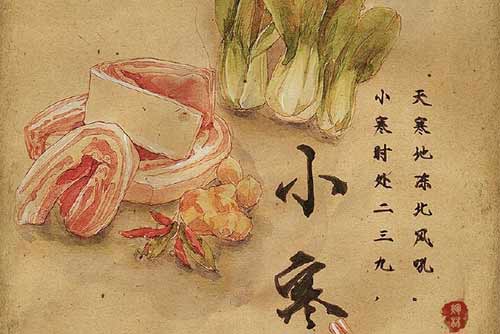 小寒
小寒时处二三九，
天寒地冻北风吼。